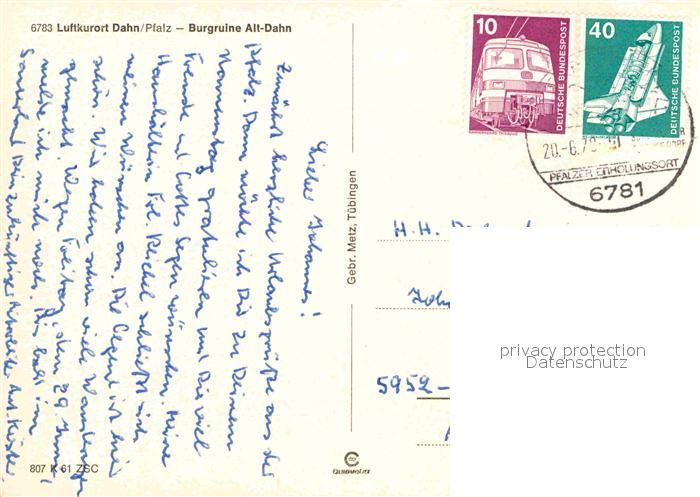 6783 Luftkurort Dahn/Pfalz – Burgruine Alt-Dahn
Lieber Johannes!
Zunächst herzliche Urlaubsgrüße aus der
Pfalz. Dann möchte ich Dir zu Deinem
Namenstag gratulieren und Dir viel
Freude und Gottes Segen wünschen. Meine
Haushälterin Frl. Reichel schließt sich
meinen Wünschen an. Die Gegend ist hier
schön. Wir haben schon viele Wanderungen
gemacht. Wegen Freitag, dem 29. Juni,
melde ich mich noch. Bis bald im
Sauerland Dein
Gebr. Metz, Tübingen
807 K 61 ZSC
10
DEUTSCHE BUNDESPOST
40
DEUTSCHE BUNDESPOST
20.-6.79
PFÄLZER ERHOLUNGSORT
6781
H. H.
5952-
privacy protection
Datenschutz